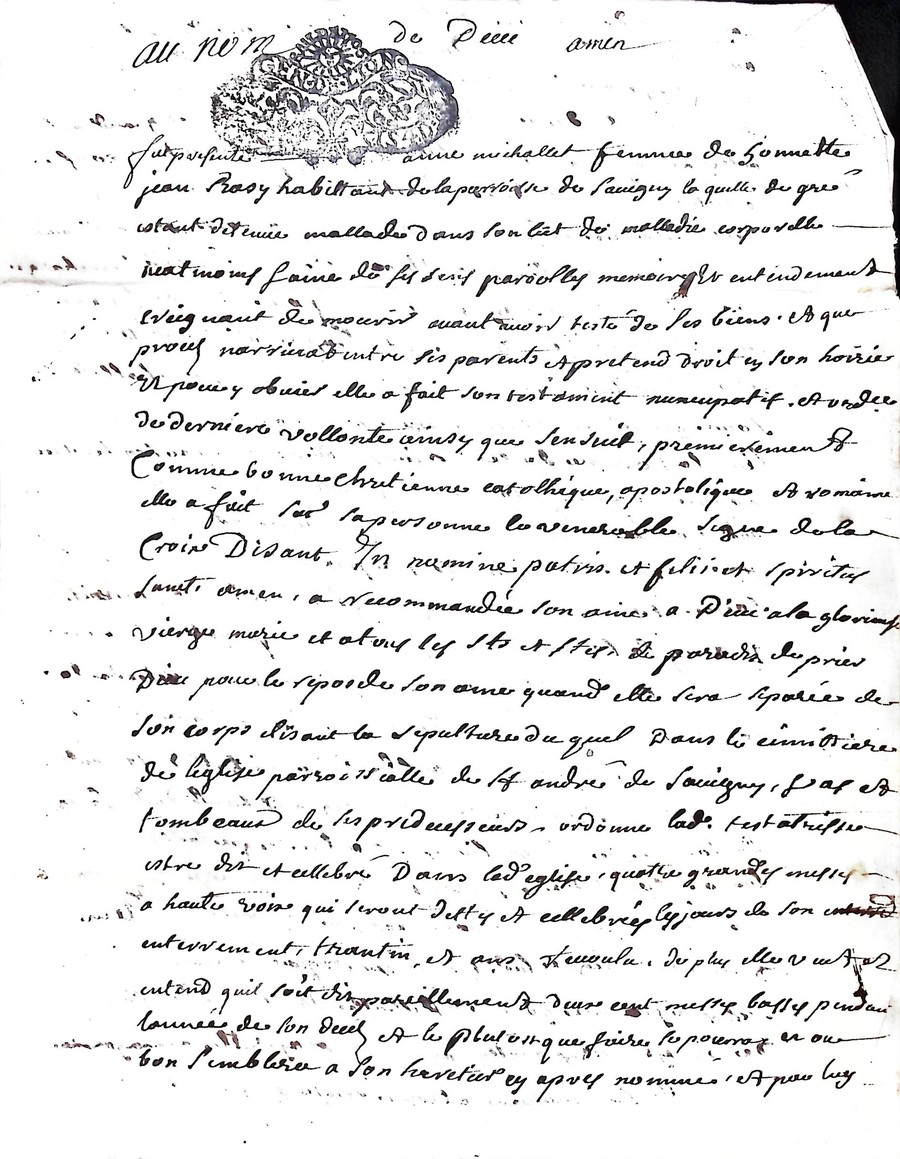 au nom de Dieu amen
GENERALITE DE LION
fut presente anne michallet femme de honnette
jean Rasy habittant de la parroisse de Savigny la quelle de gre
estant detenue mallade dans son lict de malladie corporelle
neatmoins saine de ses sens parolles memoire Et entendement
creignant de mourir avant avoir testé de ses biens. et que
proces narrivat entre ses parents et pretend droit en son hoirie
Et pour y obvier elle a fait son testament nuncupatif. et ordce
de derniere vollonté ainsy que sensuit, premierement
Comme bonne chretienne catholique, apostolique et romaine
elle a fait sur sa personne le venerable signe de la
Croix Disant. In nomine patris. et filii. et spiritus
Sancti amen, a recommandée son ame a Dieu a la glorieuse
vierge marie et a tous les Sts et Stes de paradis de prier
Dieu pour le repos de son ame quand elle sera separée de
son corps elisant la sepulture du quel Dans le cimittiere
de leglise parroissialle de St andré de Savigny, vas et
tombeaux de ses predecesseurs, ordonne lad. testatrisse
estre dit et cellebré Dans lad eglise, quatre grandes messes
a haute voix qui seront dettes et cellebrées les jours de son
enterrement, trantin, et ans revoulu. de plus elle veut et
entend quil soit dit pareillement deux cent messes basses pendant
lannee de son deces et le plutost que faire se pourra et ou
bon semblera a son heretier cy apres nommé, et par luy